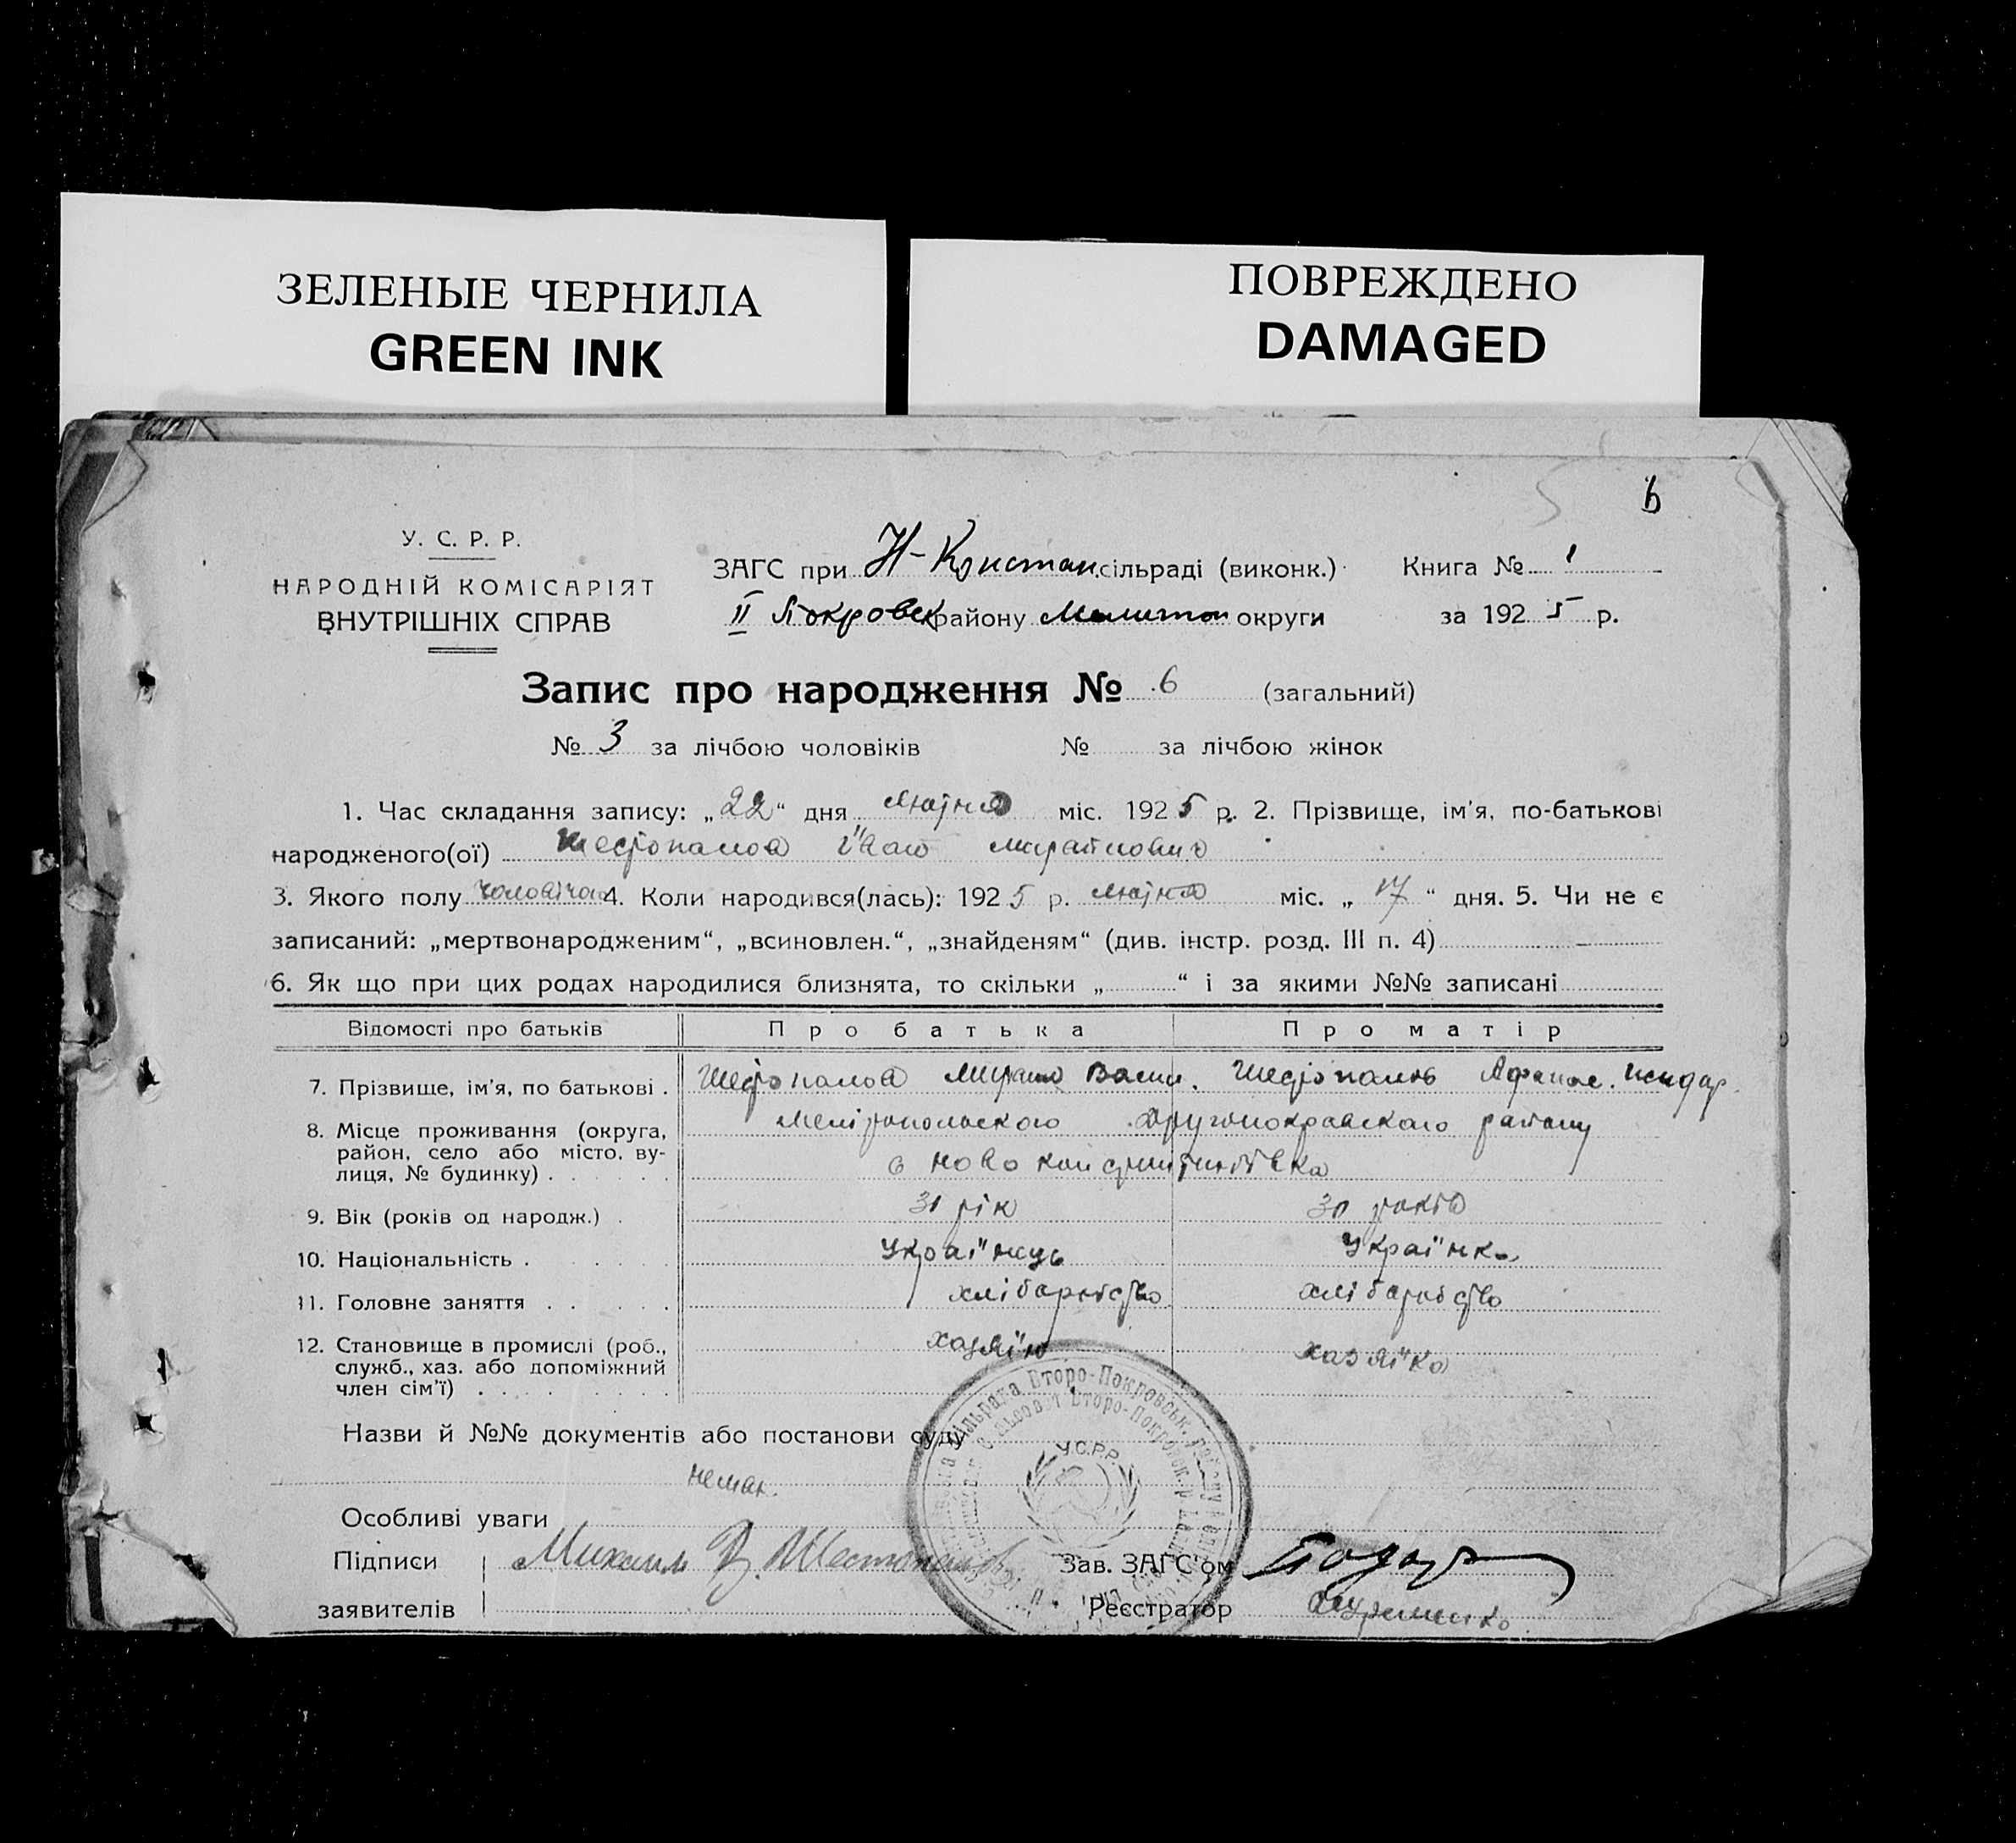 ЗЕЛЕНЫЕ ЧЕРНИЛА
GREEN INK
ПОВРЕЖДЕНО
DAMAGED
6
У. С. Р. Р.
НАРОДНІЙ КОМІСАРІЯТ
ВНУТРІШНІХ СПРАВ
ЗАГС при Н-Констан сільраді (виконк.) Книга № 1
II Покровськ району Мелитоп округи за 1925 р.
Запис про народження № 6 (загальний)
№ 3 за лічбою чоловіків № за лічбою жінок
1. Час складання запису: „22“ дня Лютня міс. 1925 р. 2. Прізвище, ім'я, по-батькові
народженого(ої) Шестопалов Іван
3. Якого полу чоловічого 4. Коли народився(лась): 1925 р. Лютня міс. „17“ дня. 5. Чи не є
записаний: „мертвонародженим“, „всиновлен.“, „знайденям“ (див. інстр. розд. III п. 4)
6. Як що при цих родах народилися близнята, то скільки „ “ і за якими №№ записані
Відомості про батьків Про батька Про матір
7. Прізвище, ім'я, по батькові . Шестопалов Васил. Шестопалов Афанас.
8. Місце проживання (округа, район, село або місто, вулиця, № будинку) Мелітопольского Другопокравского району
с Ново константинівка
9. Вік (років од народж.) . 31 рік 30 років
10. Національність . Украінець Украінка
11. Головне заняття . . хліборобство хліборобство
12. Становище в промислі (роб., служб., хаз. або допоміжний член сім'ї) . хазяїн хазяїка
Назви й №№ документів або постанови суду
немає.
Особливі уваги
Підписи Михаил В. Шестопалов Зав. ЗАГС'ом
заявителів Реєстратор
У.С.Р.Р.